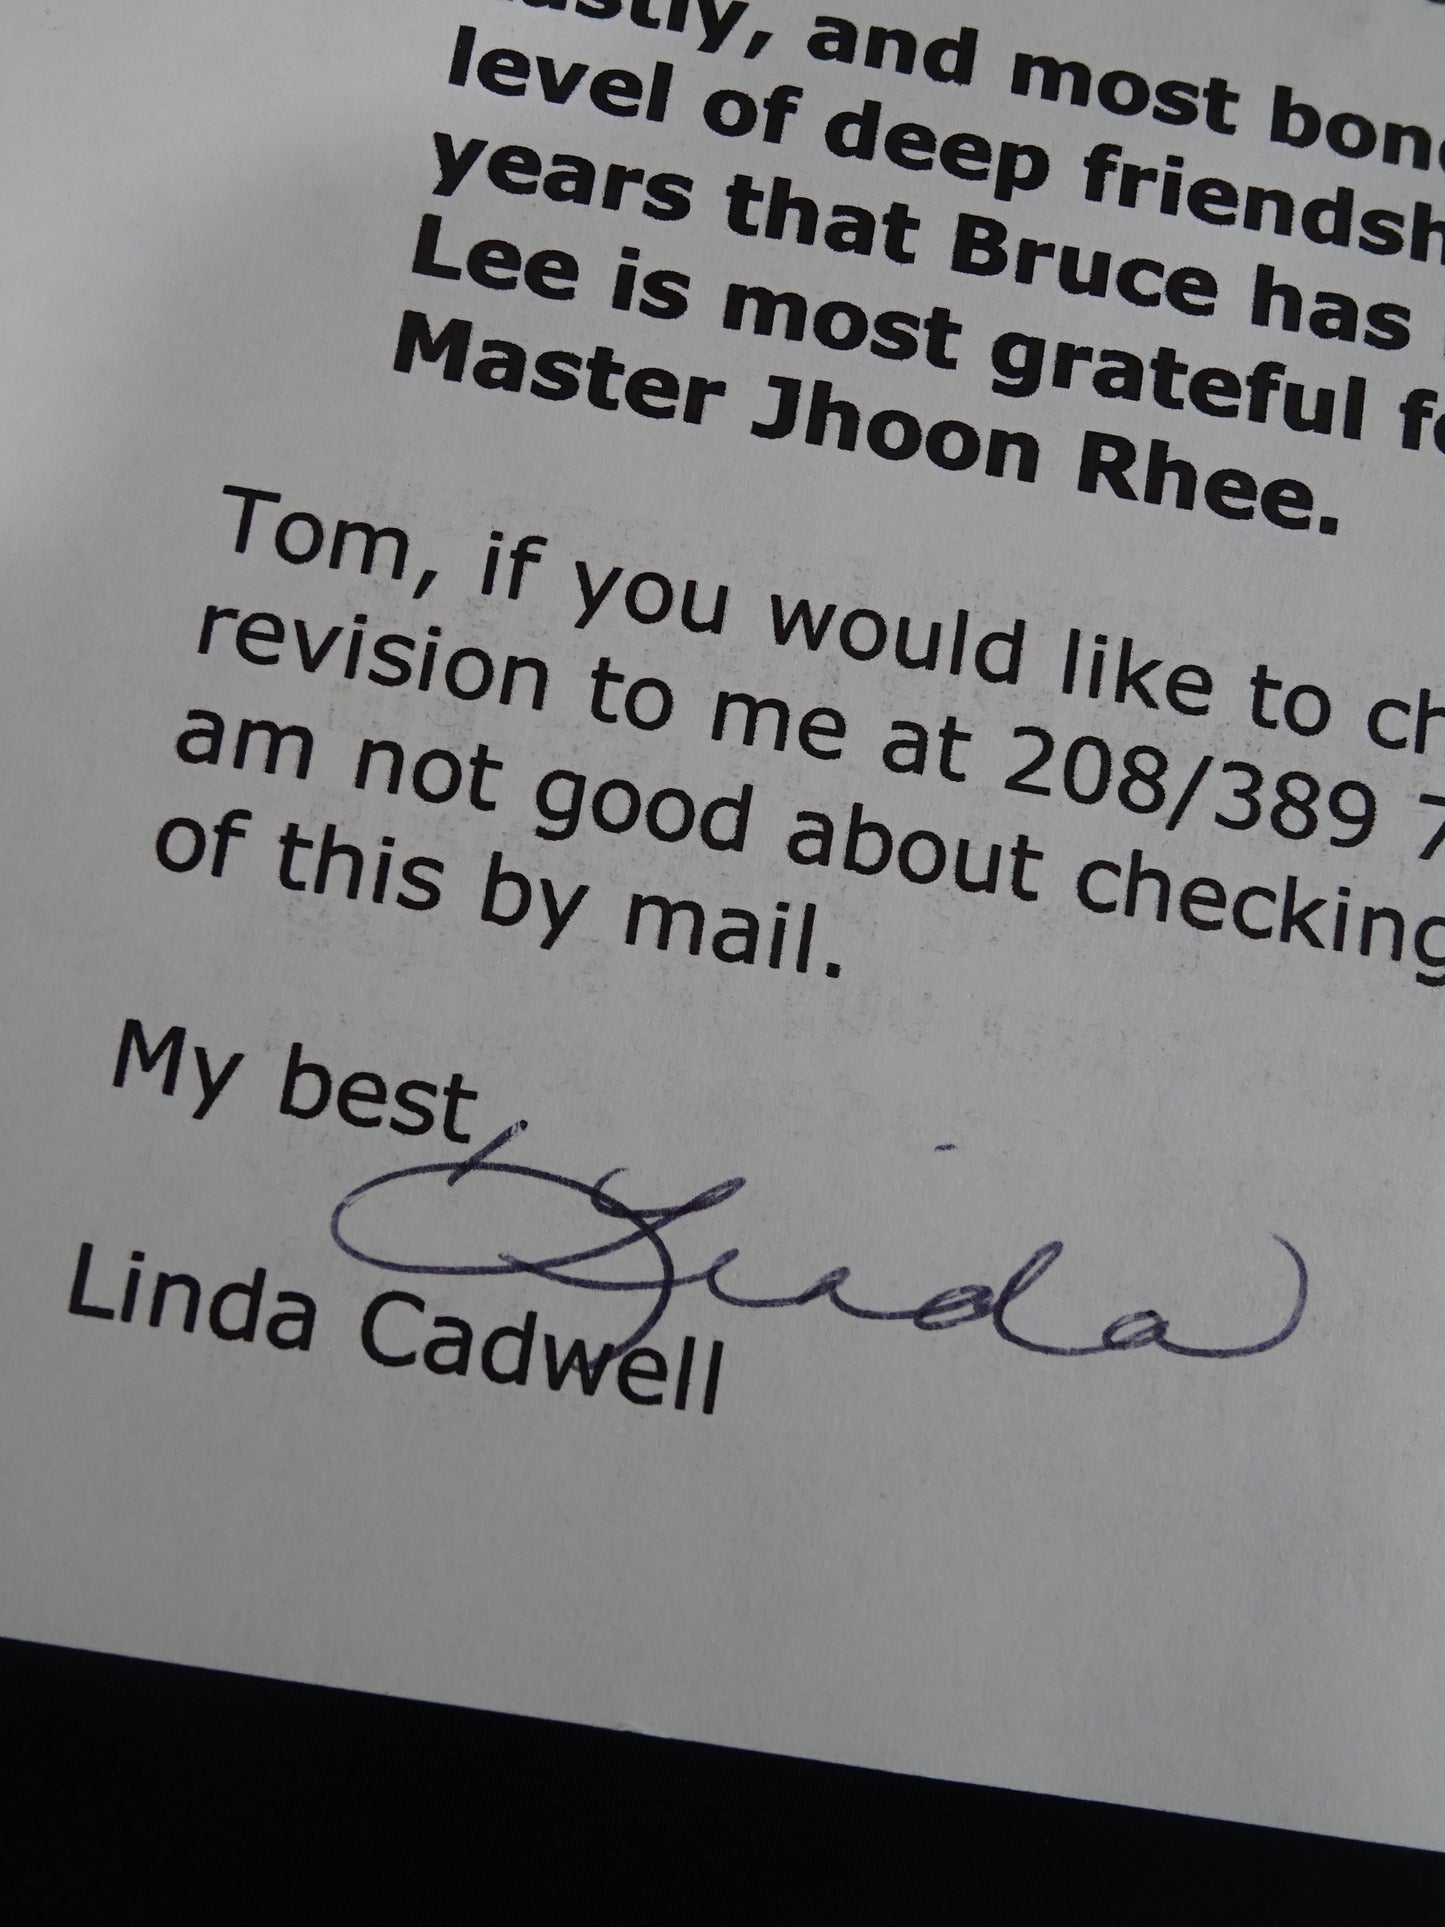 and most
level of deep
years that Bruce has
Lee is most grateful
Master Jhoon Rhee.
Tom, if you would like to
revision to me at 208/389
am not good about checking
of this by mail.
My best,
Linda
Linda Cadwell